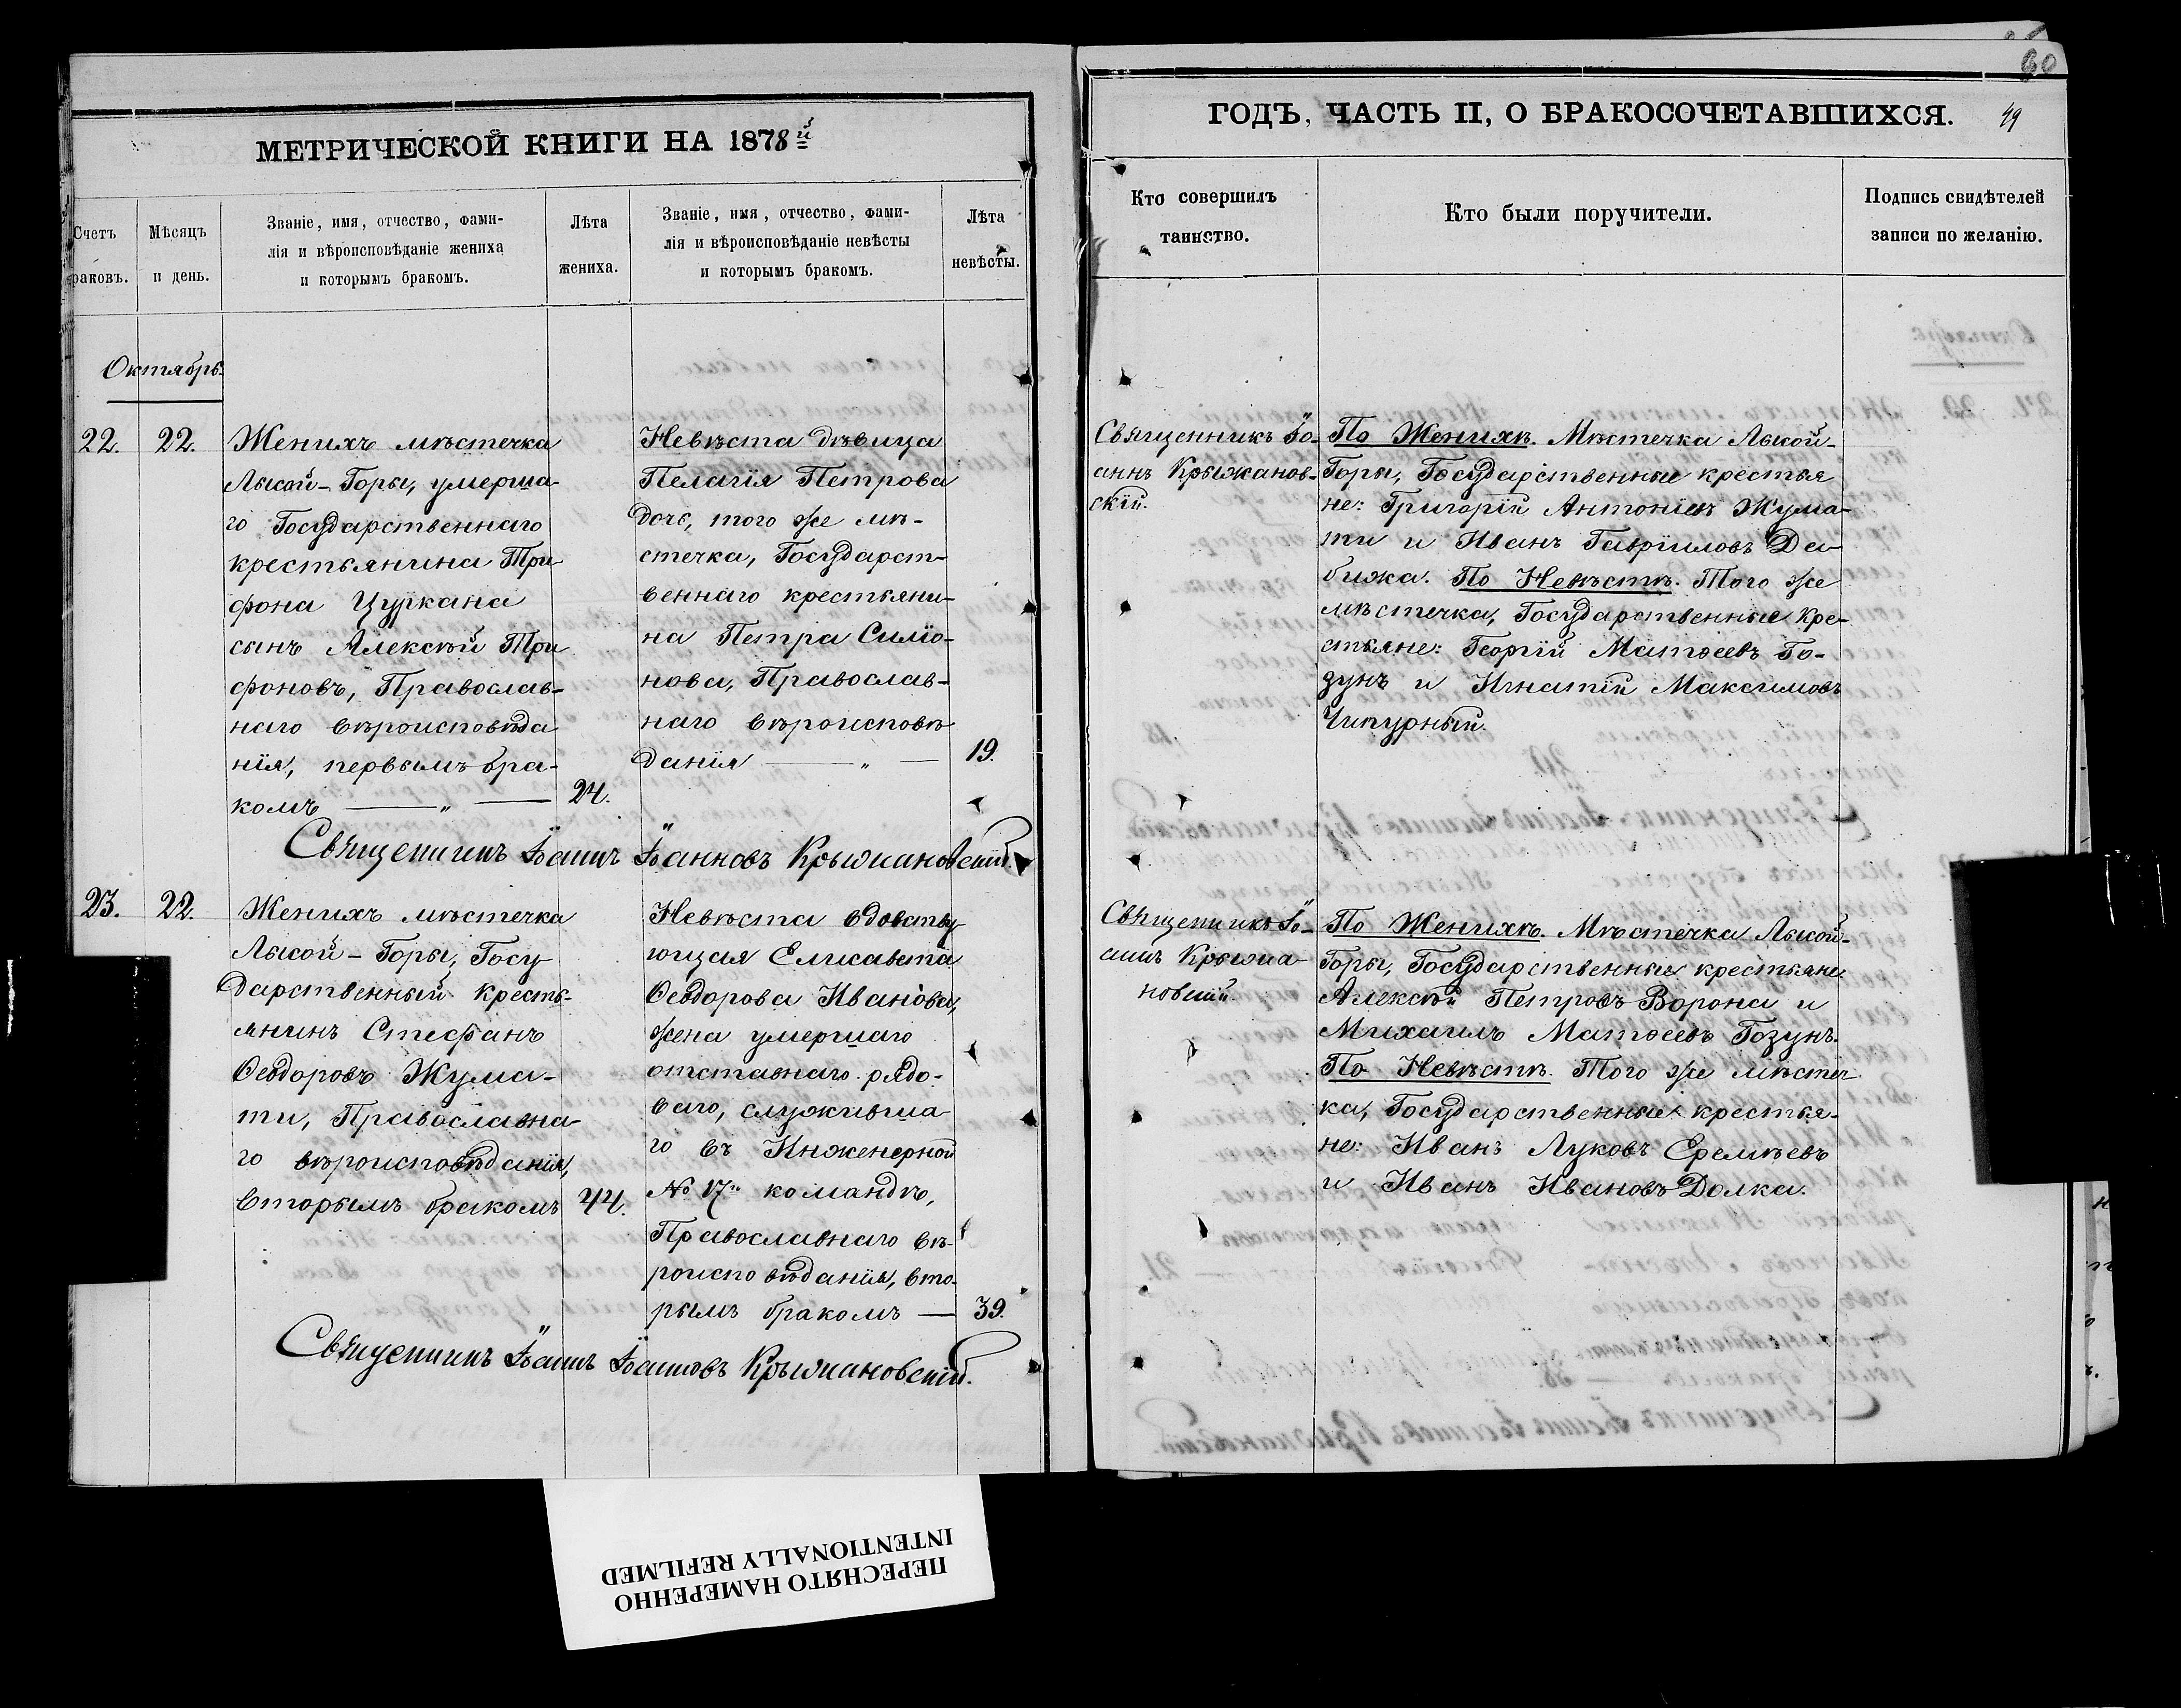 60
МЕТРИЧЕСКОЙ КНИГИ НА 1878й
Счетъ
раковъ.
Мѣсяцъ
и день.
Званіе, имя, отчество, фами-
лія и вѣроисповѣданіе жениха
и которымъ бракомъ.
Лѣта
жениха.
Званіе, имя, отчество, фами-
лія и вѣроисповѣданіе невѣсты
и которымъ бракомъ.
Лѣта
невѣсты.
Октябрь.
22.
22.
Женихъ мѣстечка
Лысой-Горы, умерша-
го Государственнаго
крестьянина Три
фона Цуркана
сынъ Алексѣй Три
фоновъ, Православ-
наго вѣроисповѣда
нія, первымъ бра-
комъ — „ —
24.
Невѣста дѣвица
Пелагія Петрова
дочь, того же мѣ-
стечка, Государст-
веннаго крестьяни-
на Петра Симіо-
нова, Православ-
наго вѣроисповѣ
данія — „ —
19.
Священникъ Іоаннъ Іоанновъ Крыжановскій.
23.
22.
Женихъ мѣстечка
Лысой-Горы, Госу
дарственный кресть-
янинъ Стефанъ
Ѳеодоровъ Жума-
ти, Православна-
го вѣроисповѣданія,
вторымъ бракомъ
44.
Невѣста вдовству
ющая Елисавета
Ѳеодорова Иванова,
жена умершаго
отставнаго рядо-
ваго, служивша
го въ Инженерной
№ 17й командѣ,
Православнаго вѣ-
роисповѣданія, вто-
рымъ бракомъ —
39.
Священникъ Іоаннъ Іоанновъ Крыжановскій.
ГОДЪ, ЧАСТЬ II, О БРАКОСОЧЕТАВШИХСЯ.
49
Кто совершилъ
таинство.
Кто были поручители.
Подпись свидѣтелей
записи по желанію.
Священникъ Іо-
аннъ Крыжанов-
скій.
По Женихѣ. Мѣстечка Лысой-
Горы, Государственные крестья
не: Григорій Антоніевъ Жума-
ти и Иванъ Гавріиловъ Да-
бижа. По Невѣстѣ. Того же
мѣстечка, Государственные кре-
стьяне: Георгій Матѳеевъ Го-
зунъ и Игнатій Максимовъ
Чикурный.
Священникъ Іо-
аннъ Крыжа-
новскій.
По Женихѣ. Мѣстечка Лысой-
Горы, Государственные крестьяне
Алексѣй Петровъ Ворона и
Михаилъ Матѳеевъ Гозунъ.
По Невѣстѣ. Того же мѣстеч
ка, Государственные крестья-
не: Иванъ Луковъ Еремѣевъ
и Иванъ Ивановъ Долка.
ПЕРЕСНЯТО НАМЕРЕННО
INTENTIONALLY REFILMED